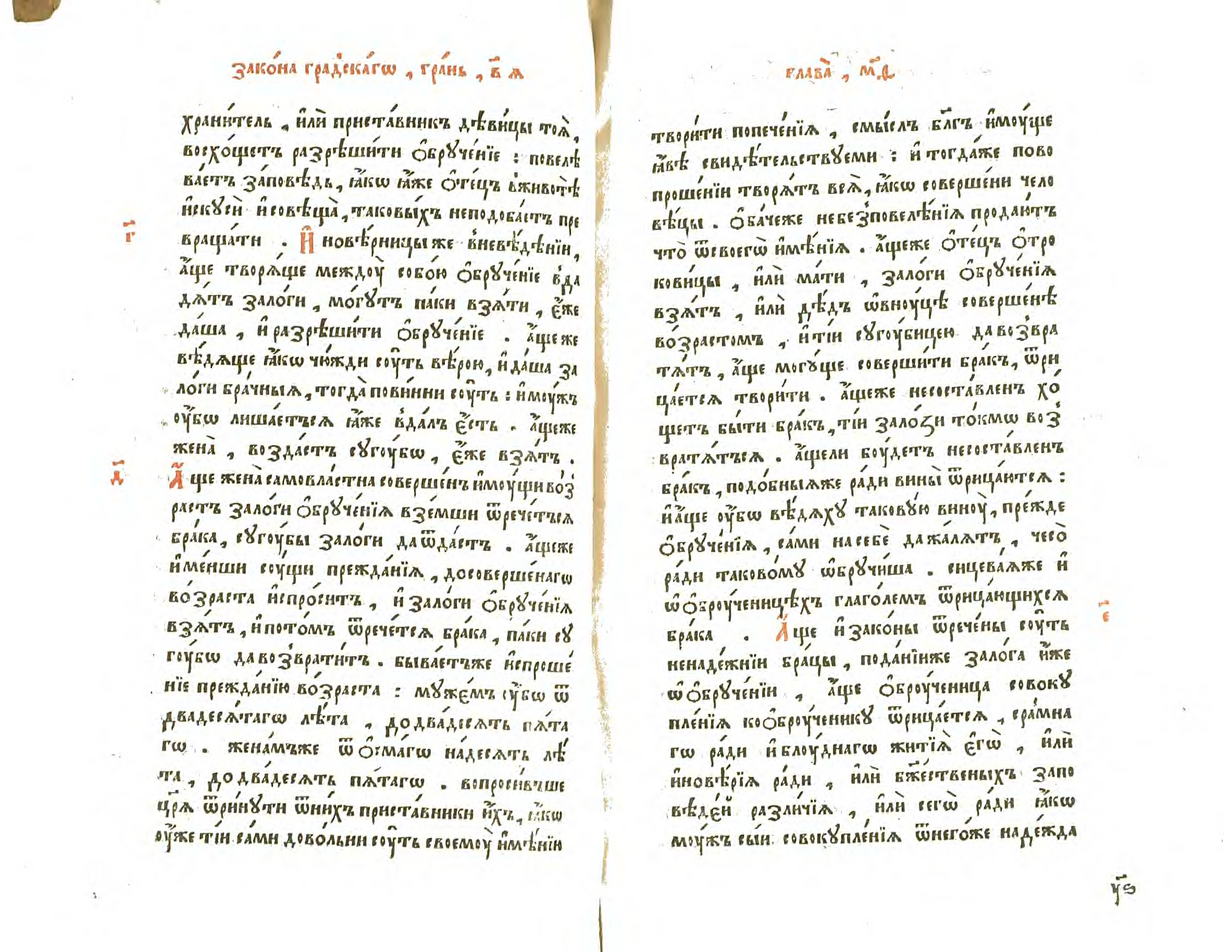 зако́на гра́дскагѡ , гра́нь , в҃ ѧ
храни́тель , и҆лѝ приста́вникъ дѣви́цы тоѧ̀ ,
восхо́щетъ разрѣши́ти ѻ҆бруче́нїе : повелѣ
ва́етъ за́повѣдь , ꙗ҆́кѡ ꙗ҆́же ѻ҆те́цъ в̾животѣ̀
и҆скусѝ и҆совѣща̀ , таковы́хъ неподоба́етъ пре
враща́ти . И҆ новѣ́рницы же в̾невѣ́дѣнїи ,
г҃
а҆́ще творѧ́ще междоу̀ собо́ю ѻ҆бруче́нїе в̾да
дѧ́тъ зало́ги , мо́гутъ па́ки взѧ́ти , є҆́же
да́ша , и҆ разрѣши́ти ѻ҆бруче́нїе . а҆́ще же
вѣ́дѧще ꙗ҆́кѡ чю́жди соу́ть вѣ́рою , и҆да́ша за
ло́ги бра́чныѧ , тогда̀ пови́нни соу́ть : и҆ моу́жъ
оу҆́бѡ лиша́етьсѧ ꙗ҆́же в̾да́лъ є҆́сть . а҆́щеже
жена̀ , возда́стъ сугоу́бѡ , є҆́же взѧ́тъ .
д҃
А҆́ ще жена̀ самовла́стна соверше́нъ и҆моу́щи воз̾
растъ зало́ги ѻ҆бруче́нїѧ взе́мши ѿрече́тьсѧ
бра́ка , сугоу́бы зало́ги да ѿда́стъ . а҆́щеже
и҆ ме́нши соу́щи прежда́нїѧ , досоверше́нагѡ
во́зраста и҆спро́ситъ , и҆ зало́ги ѻ҆бруче́нїѧ
взѧ́тъ , и҆ пото́мъ ѿрече́тсѧ бра́ка , па́ки су
гоу́бѡ да возврати́тъ . быва́етъже и҆спроше́
нїе прежда́нїю во́зраста : муже́мъ оу҆́бѡ ѿ
двадесѧ́тагѡ лѣ́та , до два́десѧть пѧ́та
гѡ . жена́мъже ѿ ѻ҆сма́гѡ на́десѧть лѣ́
та , до два́десѧть пѧ́тагѡ . вопроси́въше
цр҃ѧ ѿри́нути ѿни́хъ приста́вники и҆́хъ , ꙗ҆́кѡ
оу҆же ті́и са́ми дово́льни соу́ть своемоу̀ и҆мѣ́нїи
глава̀ , м҃ѳ
твори́ти попече́нїѧ , смы́слъ бл҃гъ и҆моу́ще
ꙗ҆́вѣ свидѣ́тельствуеми : и҆ тогда́же пово
проше́нїи творѧ́тъ всѧ̀ , ꙗ҆́кѡ соверше́ни чело
вѣ́цы . ѻ҆ба́чеже небезповелѣ́нїѧ прода́итъ
что̀ ѿ своегѡ̀ и҆мѣ́нїѧ . а҆́щеже ѻ҆те́цъ ѻ҆тро
кови́цы , и҆лѝ ма́ти , зало́ги ѻ҆бруче́нїѧ
взѧ́тъ , и҆лѝ дѣ́дъ ѡ҆внуцѣ̀ соверше́нѣ
во́зрастомъ , и҆ ті́и сугоу́бицею да возвра
тѧ́тъ , а҆́ще могу́ще соверши́ти бра́къ , ѿри
ца́етсѧ твори́ти . а҆́щеже несоста́вленъ хо́
щетъ бы́ти бра́къ , ті́и зало́ги то́кмѡ воз̾
вратѧ́тьсѧ . а҆́щели боу́детъ несоста́вленъ
бра́къ , подо́бныѧже ра́ди вины̀ ѿрица́ютсѧ :
и҆ а҆́ще оу҆́бѡ вѣ́дѧху такову́ю виноу̀ , пре́жде
ѻ҆бруче́нїѧ , са́ми на себѐ да жа́лѧтъ , чесо̀
ра́ди таково́му ѡ҆бручи́ша . сицева́ѧже и҆
ѡ҆ ѻ҆броу́ченицѣхъ глаго́лемъ ѿрица́ющихсѧ
бра́ка . А҆́ ще и҆ зако́ны ѿрече́ны соу́ть
е҃
ненаде́жнїи бра́цы , пода́нїиже зало́га и҆́же
ѡ҆ ѻ҆бруче́нїи , а҆́ще ѻ҆броу́ченица совоку
пле́нїѧ ко ѻ҆броу́ченику ѿрица́етсѧ , сра́мна
гѡ ра́ди и҆ блоу́днагѡ житїѧ̀ є҆гѡ̀ , и҆лѝ
и҆новѣ́рїѧ ра́ди , и҆лѝ бж҃е́ственыхъ запо
вѣ́дей разли́чїѧ , и҆лѝ сегѡ̀ ра́ди ꙗ҆́кѡ
моу́жъ сы́и совокупле́нїѧ ѿнего́же наде́жда
у҃ѕ